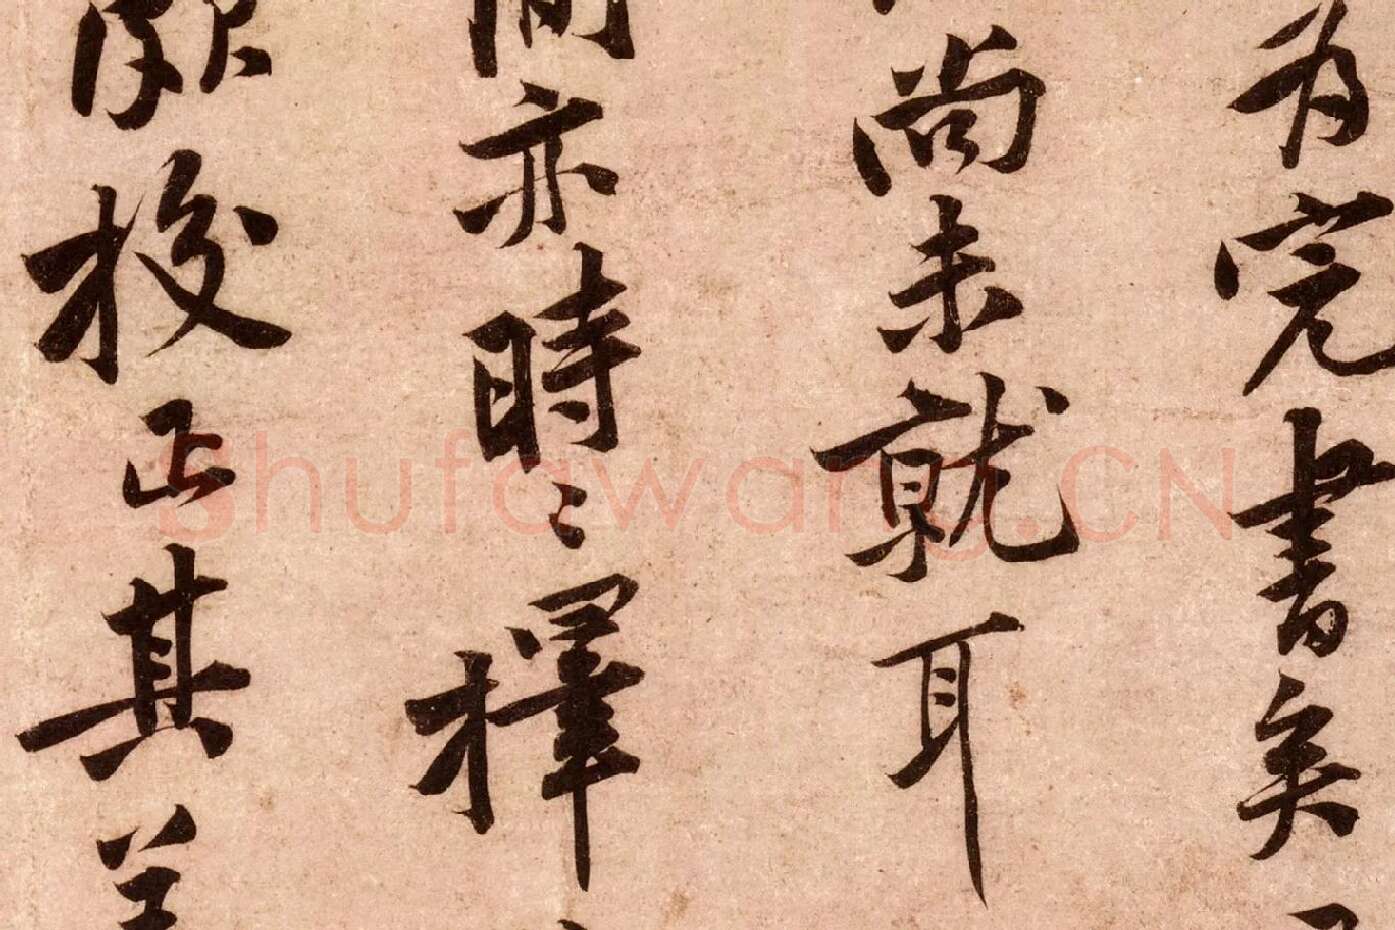 為完書矣
尚未就耳
間亦時〻擇
校正其
shufawang.CN